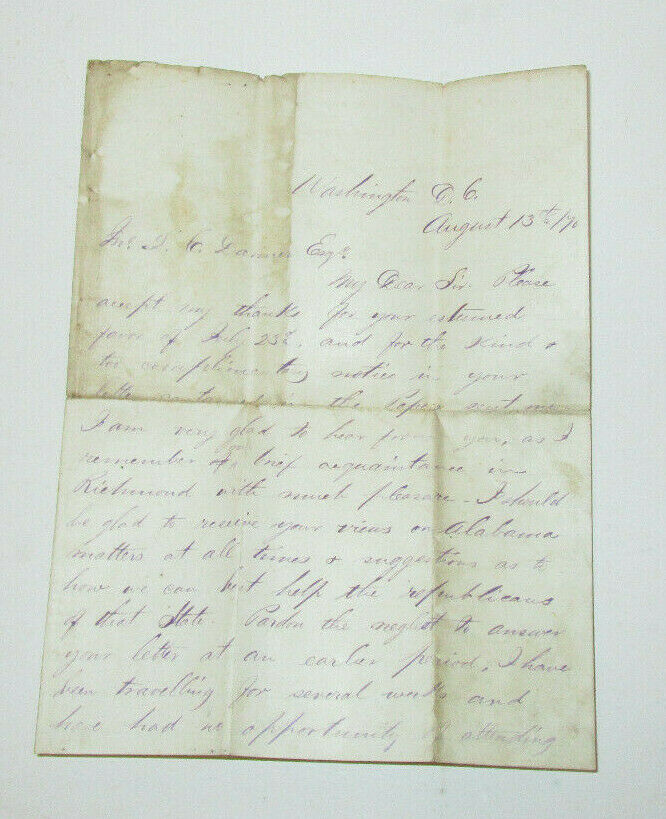 Washington D. C.
August 13th /70
Jno. J. C. Esqr
My Dear Sir. Please
accept my thanks for your esteemed
favor of July 23d, and for the kind &
too complimentary notice in your
letter contained in the Paper sent me.
I am very glad to hear from you, as I
remember our brief acquaintance in
Richmond with much pleasure - I should
be glad to receive your views on Alabama
matters at all times & suggestions as to
how we can best help the republicans
of that State. Pardon the neglect to answer
your letter at an earlier period, I have
been travelling for several weeks and
have had no opportunity of attending